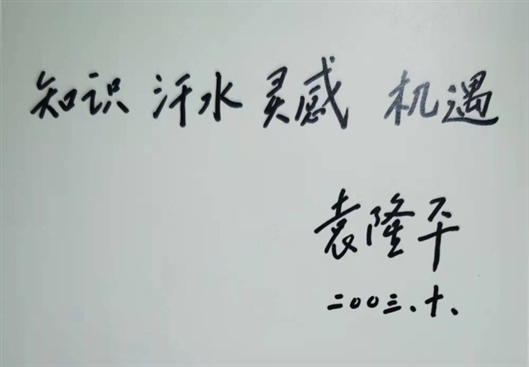 知识 汗水 灵感 机遇
袁隆平
二00三、十、